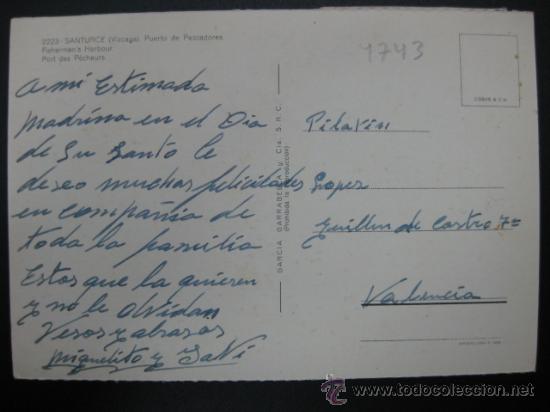 2223 - SANTURCE (Vizcaya). Puerto de Pescadores
Fisherman's Harbour
Port des Pêcheurs
4743
A mi Estimada
Madrina en el Dia
de Su Santo le
deseo muchas felicidades
en compañia de
toda la familia
Estos que la quieren
y no le olvidan
Vesos y abrasos
Miguelito y Javi
GARCIA GARRABELLA y Cia. S. R. C.
(Prohibida la reproducción)
Pilarin
Lopez
Guillen de Castro 7=
Valencia
© www.todocoleccion.net